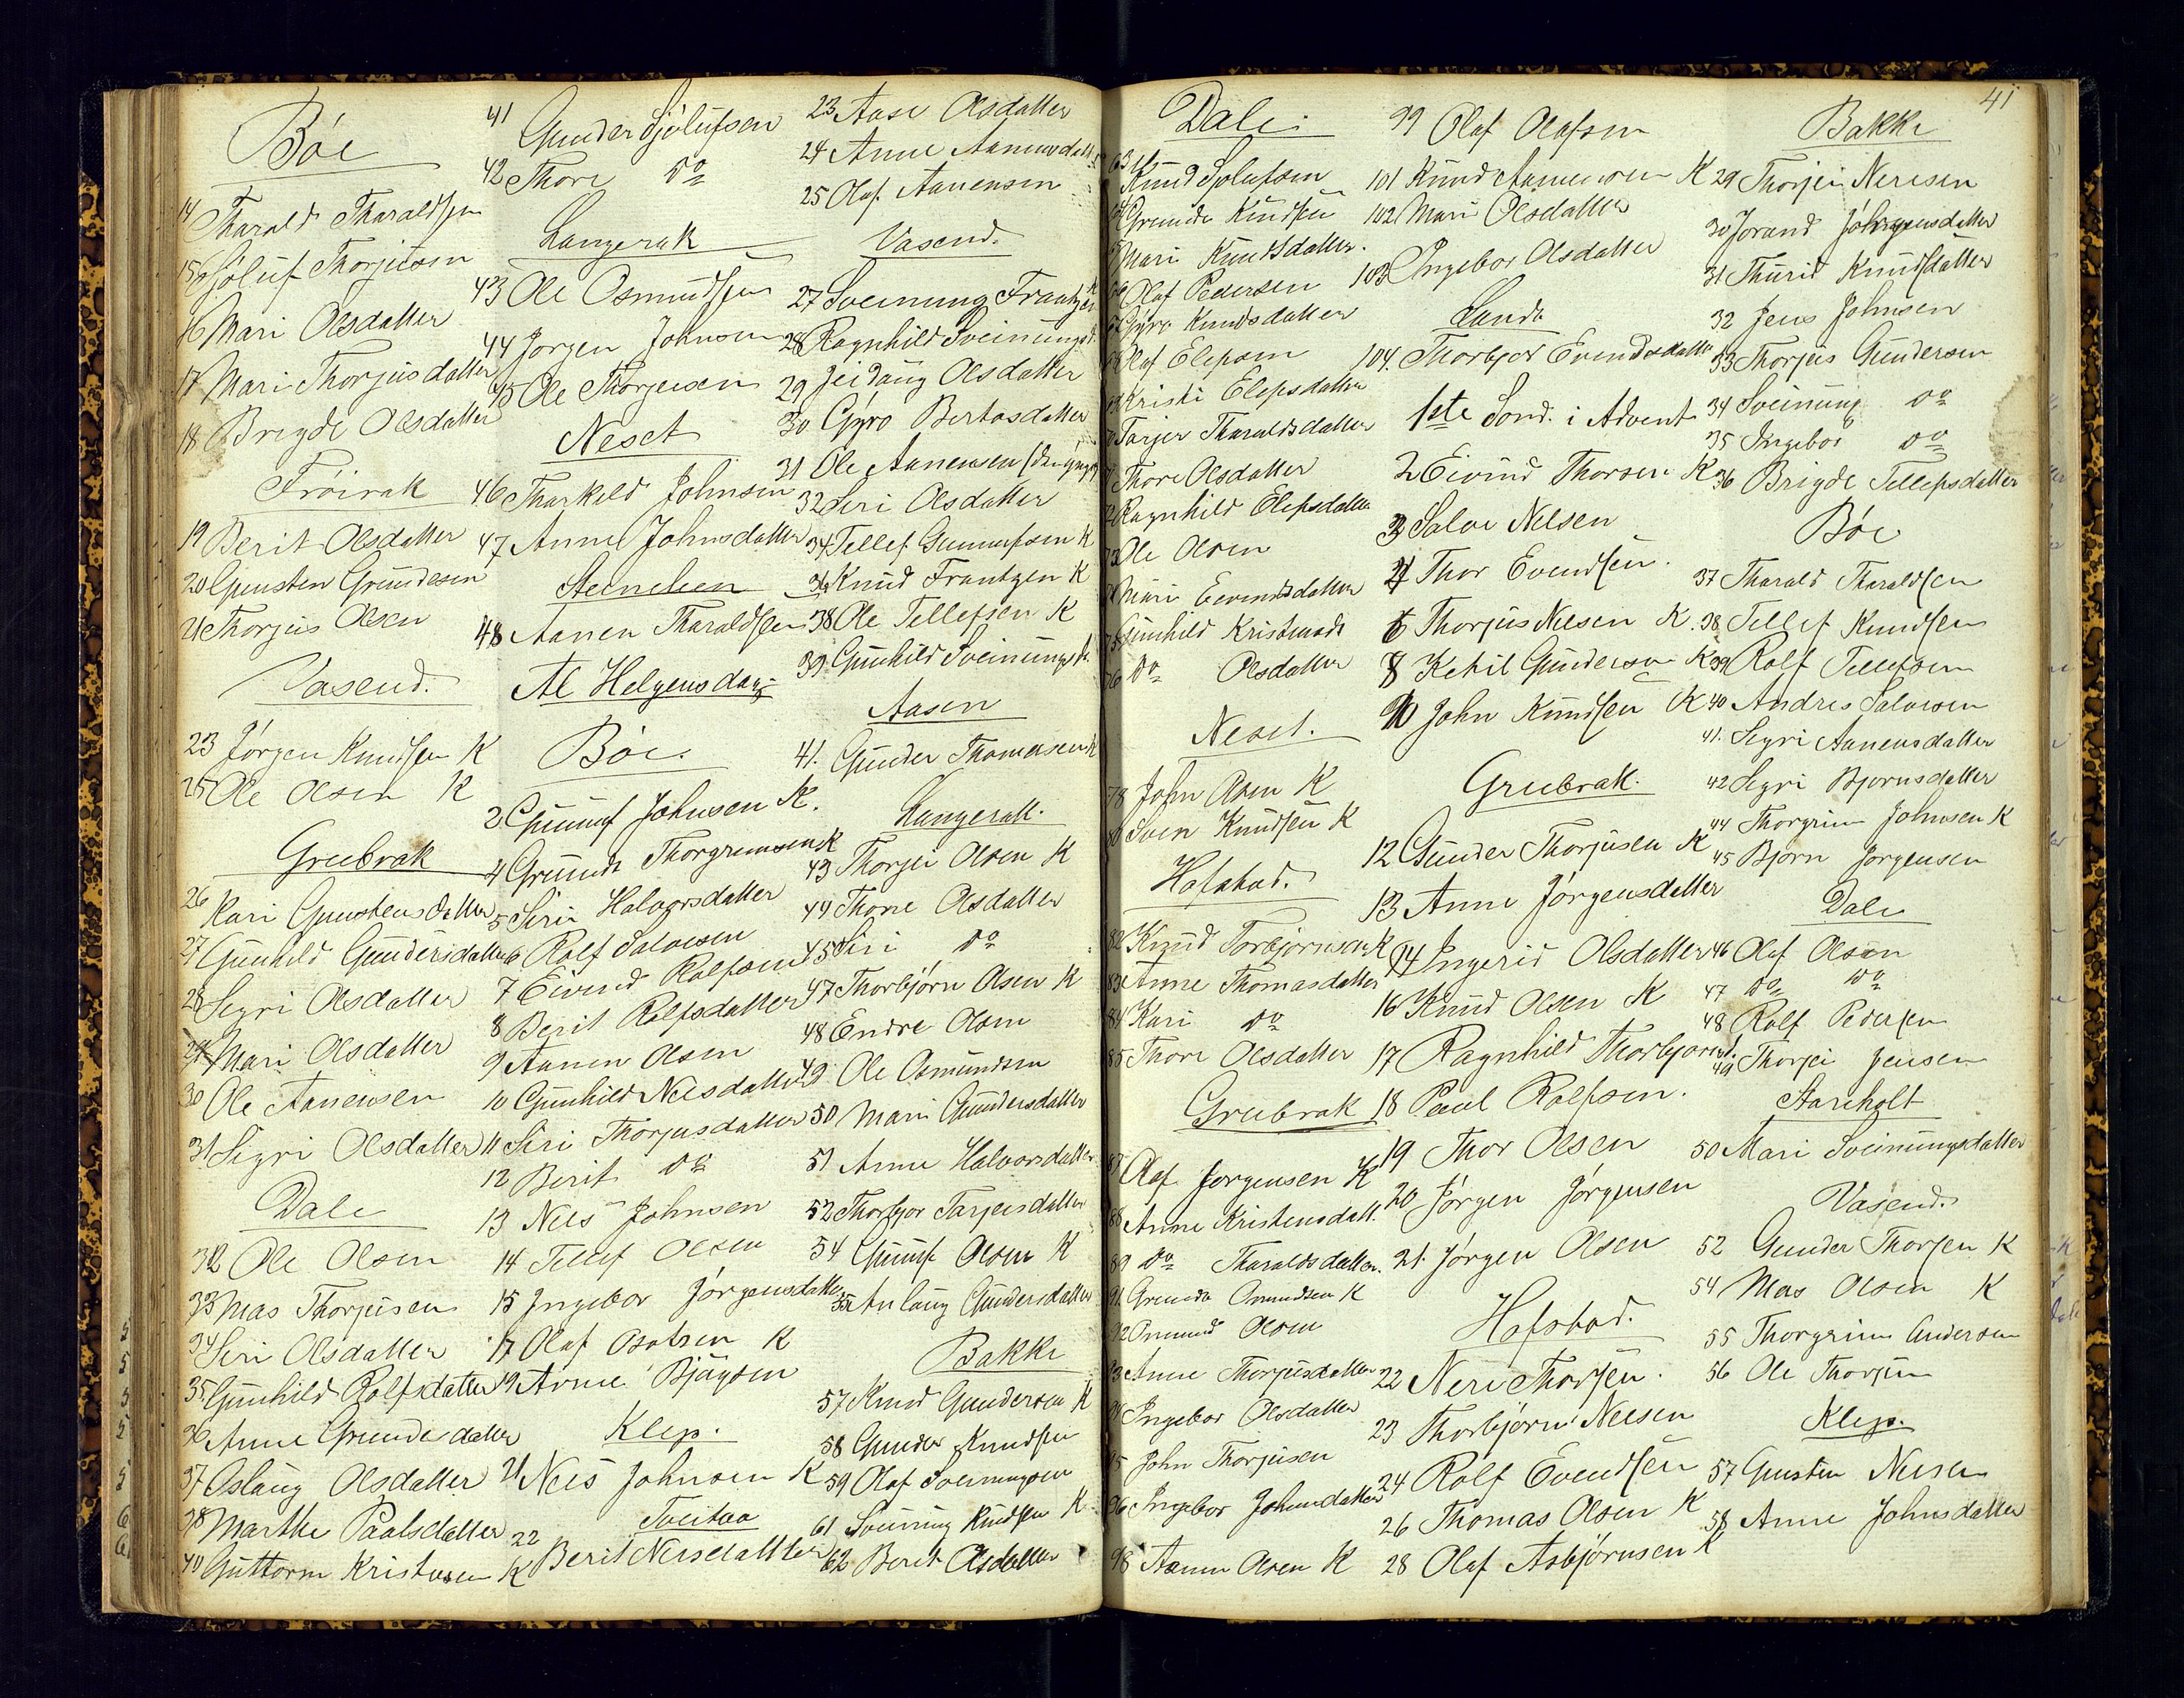 Bóe
14 Tharald Tharaldsen
15 Sjöluf Thorjussen
16 Mari Olsdatter
17 Mari Thorjusdatter
18 Brigde Olsdatter
Fróirak
19 Berit Olsdatter
20 Gunsten Grundesen
21 Thorjus Olsen
Vasend.
23 Jórgen Knudsen K
25 Ole Olsen K
Greibrak
26 Kari Gunstensdatter
27 Gunhild Gundersdatter
28 Segri Olsdatter
29 Mari Olsdatter
30 Ole Aanensen
31 Sigri Olsdatter
Dale
32 Ole Olsen
33 Mas Thorjusen
34 Siri Olsdatter
35 Gunhild Rolfsdatter
36 Anne Grundesdatter
37 Oslaug Olsdatter
38 Marthe Paalsdatter
40 Guttorm Kristensen K
41 Gunder Sjólufsen
42 Thore Do
Langerak
43 Ole Osmundsen
44 Jorgen Johnsen
45 Ole Thorgeisen
Neset
46 Tharkeld Johnsen
47 Anne Johnsdatter
Steinelien
48 Aanen Tharaldsen
Al Helgensdag
Bóe.
2 Gunuf Johnsen K.
4 Grunde Thorgrimsen K
5 Siri Halvorsdatter
6 Rolf Salvesen
7 Eivind Rolfsen
8 Berit Rolfsdatter
9 Aanen Olsen
10 Gunhild Neisdatter
11 Siri Thorjusdatter
12 Berit Do
13 Neis Johnsen
14 Tellef Olsen
15 Ingebor Jórgensdatter
17 Olaf Osolsen K
19 Arne Bjugsen
Klep.
21 Neis Johnsen K
Tveitaa
22 Berit Neisdatter
23 Aase Olsdatter
24 Anne Aanensdatt
25 Olaf Aanensen
Vasend.
27 Sveinung Frantzen K
28 Ragnhild Sveinungsd.
29 Jeidaug Olsdatter
30 Gyro Bertosdatter
31 Ole Aanensen
32 Siri Olsdatter
34 Tellef Gunnufsen K
36 Knud Frantzen K
38 Ole Tellefsen K
39 Gunhild Sveinungsd.
Aasen
41. Gunder Thomesen K
Langerak.
43 Thorgei Olsen K
44 Thone Olsdatter
45 Siri Do
47 Thorbjörn Olsen K
48 Endre Olsen
49 Ole Osmundsen
50 Mari Gundersdatter
51 Anne Halvorsdatter
52 Thorbjor Tarjeisdatter
54 Gunuf Olsen K
55 Anlaug Gundersdatter
Bakke
57 Knud Gundersen K
58 Gunder Knudsen
59 Olaf Sveinungsen
61 Sveinung Knudsen K
62 Berit Olsdatter
41
Dale.
63 Knud Sjolufsen
64 Grunde Knudsen
65 Mari Knudsdatter.
66 Olaf Pedersen
67 Gyro Knudsdatter
68 Olaf Elefsen
69 Kristi Elefsdatter
70 Tarjer Tharaldsdatter
71 Thore Olsdatter
72 Ragnhild Elefsdatter
73 Ole Olsen
74 Mari Eivindsdatter
75 Gunhild Kristensdt
76 Do Olsdatter
Neset.
78 John Olsen K
80 Sven Knudsen K
Hofstad.
82 Knud Torbjornsen K
83 Anne Thomasdatter
84 Kari Do
85 Thore Olsdatter
Greibrak
87 Olaf Jorgensen K
88 Anne Kristensdatt.
89 Do Tharaldsdatter.
91 Grunde Omundsen K
92 Omund Olsen
93 Anne Thorjusdatter
94 Ingebor Olsdatter
95 John Thorjusen
96 Ingebor Johnsdatter
98 Aanen Olsen K
99 Olaf Olafsen
101 Knud Aanensen K
102 Mari Olsdatter
103 Ingebor Olsdatter
Landa
104. Thorbjor Evendsdatter
1ste Sond. i Advent
2 Eivind Thorsen K
3 Salve Nelsen
4 Thor Evendsen.
6 Thorjus Nilsen K.
8 Ketil Gundersen K
10 John Knudsen K
Greibrak.
12 Gunder Thorjusen K
13 Anne Jórgensdatter
14 Ingerid Olsdatter
16 Knud Olsen K
17 Ragnhild Thorbjornsd.
18 Paul Rolfsen.
19 Thor Olsen
20 Jórgen Jórgensen
21. Jórgen Olsen
Hofstad.
22 Neri Thorsen.
23 Thorbjörn Neesen
24 Rolf Evendsen
26 Thomas Olsen K
28 Olaf Asbjórnsen K
Bakke
29 Thorjei Nerisen
30 Jorand Jóhrgensdatter
31 Thurid Knudsdatter
32 Jens Johnsen
33 Thorjus Gundersen
34 Sveinung Do
35 Ingebor Do
36 Brigde Tellefsdatter
Bóe
37 Tharald Tharaldsen
38 Tellef Knudsen
39 Rolf Tellefsen
40 Andres Salvesen
41. Segri Aanensdatter
42 Segri Bjornsdatter
44 Thorgrim Johnsen K
45 Bjorn Jorgensen
Dale
46 Olaf Olsen
47 Do Do
48 Rolf Pedersen
49 Thorjei Jensen
Aareholt
50 Mari Sveinungsdatter
Vasend.
52 Gunder Thorsen K
54 Mas Olsen K
55 Thorgrim Andersen
56 Ole Thorsen
Klep.
57 Gunsten Neisen
58 Anne Johnsdatter